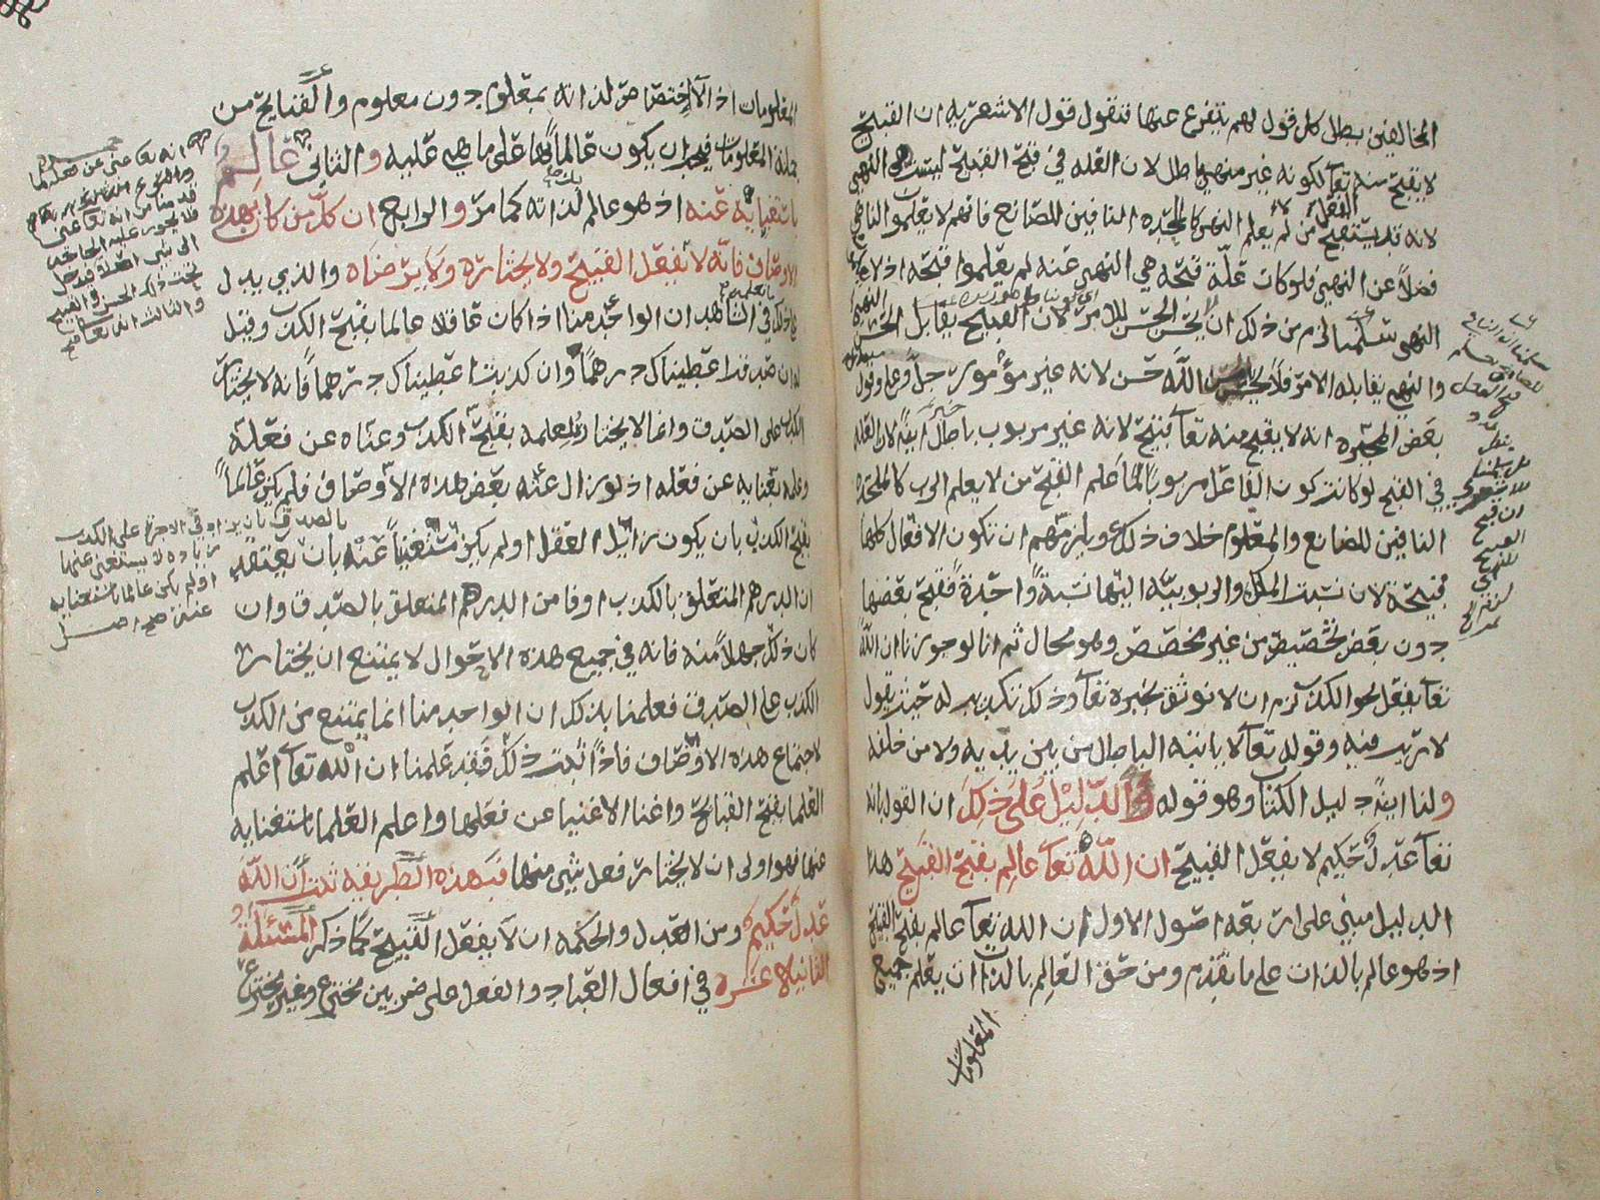 المخالفين بطل كل قول لهم يتفرع عنها فنقول قول الاشعريه ان القبيح
لا يقبح منه تعالى لكونه غير منهي باطل لان العله في قبح القبيح ليست هي النهي
لانه قد يستقبح الفعل من لم يعلم النهي كالملحده النافين للصانع فانهم لا يعلمون الناهي
فضلاً عن النهي فلو كانت علّة قبحه هي النهي عنه لم يعلموا قبحه اذ لا
النهي سلمنا لزم من ذلك ان لا يحسن الحسن الا للامر لان القبيح يقابل الحسن
والنهي يقابله الامر فلا يحسن من الله حسن لانه غير مؤمور جل وعلا وقول
بعض المجبره انه لا يقبح منه تعالى قبيح لانه غير مربوب باطل ايضاً لان العله
في القبح لو كانت كون الفاعل مربوباً لما علم القبح من لا يعلم الرب كالملحده
النافين للصانع والمعلوم خلاف ذلك ويلزمهم ان تكون الافعال كلها
قبيحة لان نسبت الملك والربوبيّه اليها نسبة واحدة فقبح بعضها
دون بعض تخصيص من غير مخصص وهو محال ثم انا لو جوزنا ان الله
تعالى يفعل نحو الكذب لزم ان لا نوثق بخبره تعالى وذلك تكذيب له حيث يقول
لا ريب فيه وقوله تعالى لا ياتيه الباطل من بين يديه ولا من خلفه
ولنا ايضاً دليل الكتاب وهو قوله والدليل على ذلك ان القول بانه
تعالى عدل حكيم لا يفعل القبيح ان الله تعالى عالم بقبح القبيح هذا
الدليل مبني على اربعة اصول الاول ان الله تعالى عالم بقبح القبيح
اذ هو عالم بالذات على ما تقدم ومن حق العالم بالذات ان يعلم جميع
المعلومات
سلمنا
ان قبح
القبيح
للنهي
المعلومات اذ لا اختصاص لذاته بمعلوم دون معلوم والقبايح من
جملة المعلومات فيجب ان يكون عالماً بها على ما هي عليه والثاني عالم
باستغنايه عنه اذ هو عالم لذاته كما مر والرابع ان كل من كان بهذه
الاوصاف فانه لا يفعل القبيح ولا يختاره ولا يرضاه والذي يدل
على ذلك في الشاهد ان الواحد منا اذا كان عاقلا عالما بقبح الكذب وقيل
له ان صدقت اعطيناك درهماً وان كذبت اعطيناك درهماً فانه لا يختار
الكذب على الصدق وانما لا يختاره لعلمه بقبح الكذب وغناه عن فعله
وعلمه بغنايه عن فعله اذ لو زال عنه بعض هذه الاوصاف فلم يكن عالماً
بقبح الكذب بان يكون زايل العقل او لم يكن مستغنياً عنه بان يعتقد
ان الدرهم المتعلق بالكذب اوفا من الدرهم المتعلق بالصدق وان
كان ذلك جهلاً منه فانه في جميع هذه الاحوال لا يمتنع ان يختار
الكذب على الصدق فعلمنا بذلك ان الواحد منا انما يمتنع من الكذب
لاجتماع هذه الاوصاف فاذا ثبت ذلك فقد علمنا ان الله تعالى اعلم
العلما بقبح القبايح واغنا الاغنيا عن فعلها واعلم العلما باستغنايه
عنها فهو اولى ان لا يختار فعل شي منها فبهذه الطريقة ثبت ان الله
عدل حكيم ومن العدل والحكمه ان لا يفعل القبيح كما ذكر المسئلة
الثانيه عشره في افعال العباد والفعل على ضربين مخترع وغير مخترع
قدمنا من انه تعالى غني
فلا يجوز عليه الحاجة
الى شي اصلا فدخل
تحت ذلك الحسن والقبيح
والثالث انه تعالى
او لم يكن عالما باستغنايه
عنه صح اصل